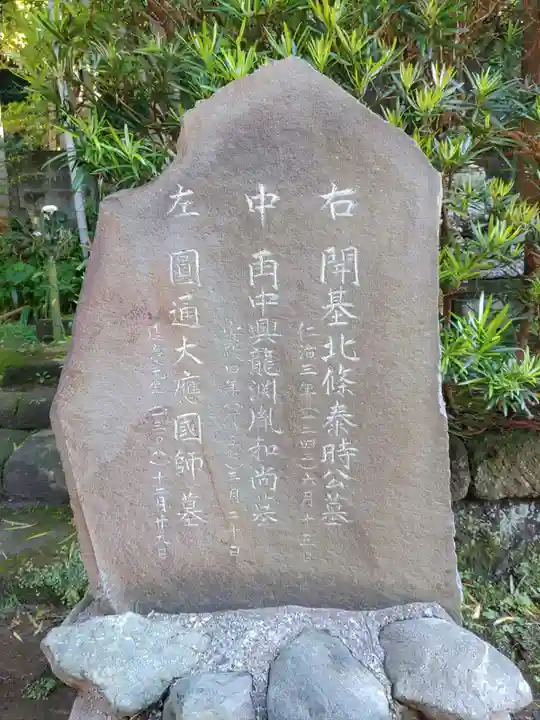 右 開基北條泰時公墓
仁治三年(一二四二)六月十五日
中 再中興龍渕胤和尚墓
四年 二月二十日
左 圓通大應國師墓
延慶元年(一三〇八)十二月廿九日